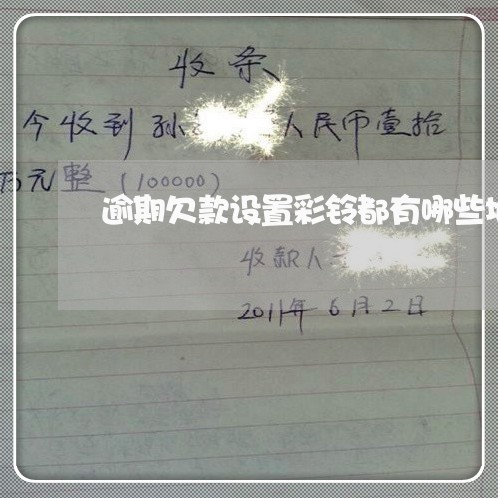 收条
今收到孙 人民币壹拾
万元整（100000）
逾期欠款设置彩铃都有哪些
收款人
2011年6月2日